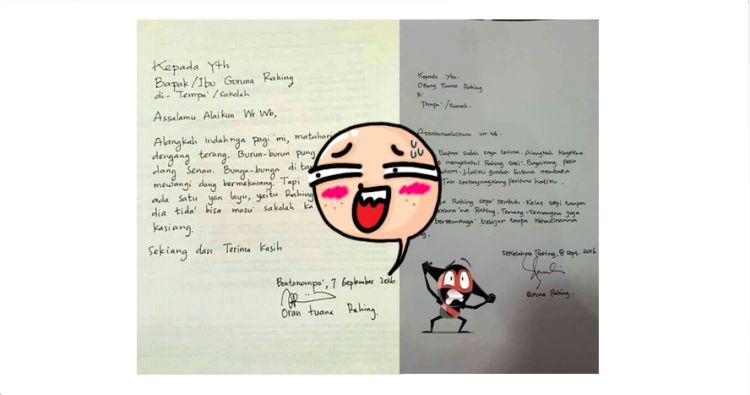 Kepada Yth
Bapak/Ibu Guruna Rahing
di- Tempa'/sakolah
Assalamu Alaikun Wr Wb,
Alangkah indahnya pagi mi, matahari
dengang terang. Burum-burun pung
dang Senan. Bunga-bunga di ta
mewangi dang bermekaning. Tapi
ada satu yan layu, yeitu Rahing
dia tida' bisa masu' sakolah ka
kasiang.
Sekiang dan Terima Kasih
Bontonompo', 7 September 2016
Oran tuana Rahing.
Kepada Yth.
Orang Tuana Rahing
Di
Tempa'/Rumah.
Assalamualaikum wr. wb.
Bapak sudah saya terima. Alangkah Kagetna
mengetahui Rahing
perihna hatiku.
Rahing cepa' sembuh. Kelas sepi tanpa
na Rahing. Temang-temangna juga
bersemanga' belajar tanpa kehadiranna
Sekolahna Rahing, 8 Sept. 2016
Guruna Rahing.